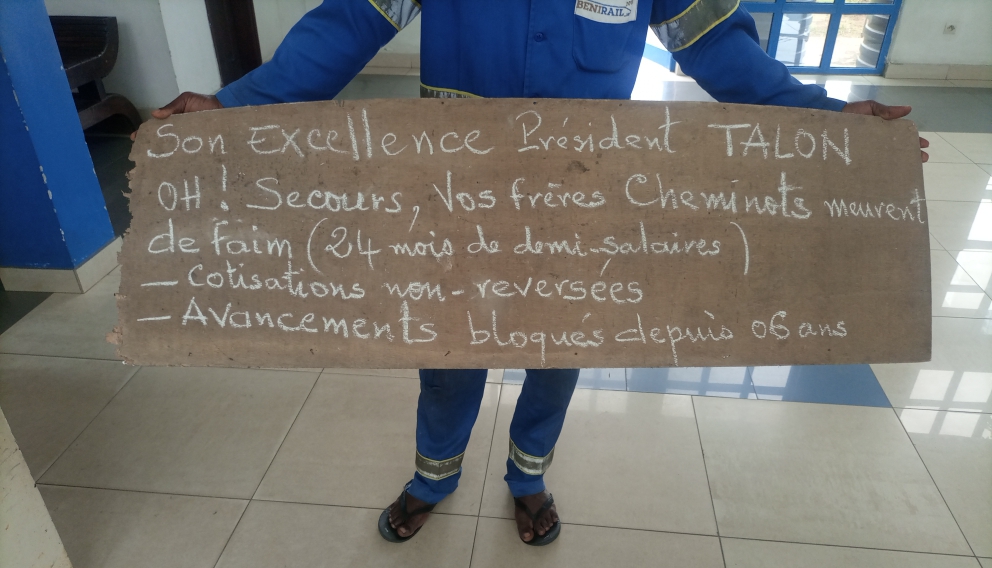 BENIRAIL
Son Excellence Président TALON
OH ! Secours, Vos frères Cheminots meurent
de faim (24 mois de demi-salaires)
— Cotisations non-reversées
— Avancements bloqués depuis 06 ans